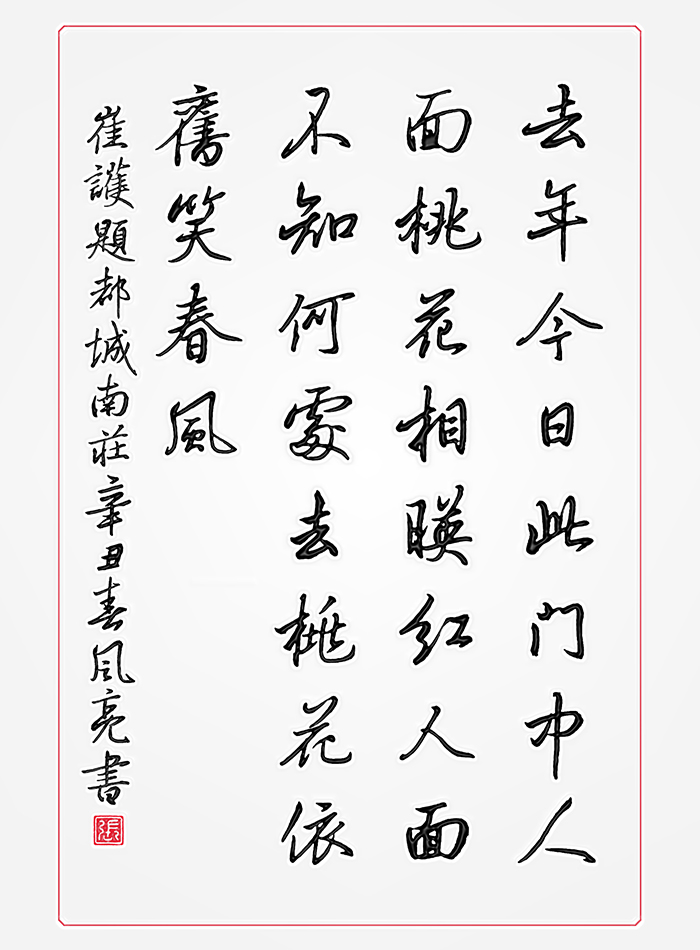 去年今日此门中人
面桃花相暎红人面
不知何處去桃花依
舊笑春風
崔護題都城南莊辛丑春风亮書
張